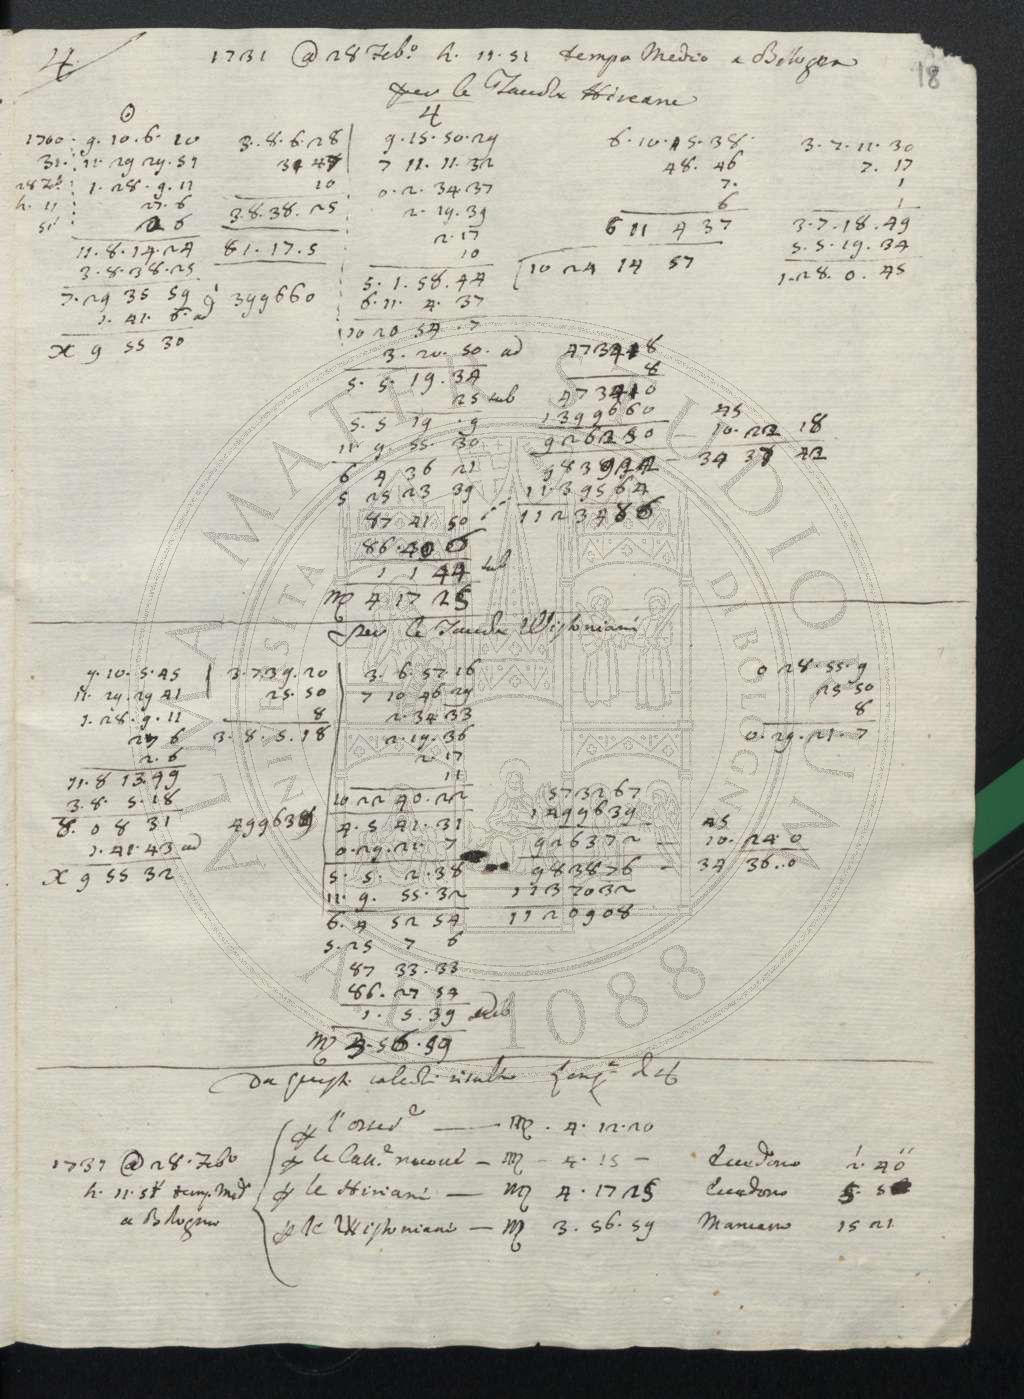 ♃ 1731 @ 28 Febo. h. 11. 51 tempo Medio a Bologna
18
per le Tavole Hireane
☉ ♃
1700. 9. 10. 6. 20 3. 8. 6. 28 9. 15. 50. 29 6. 10. 15. 38 3. 7. 11. 30
31. 11. 29 29. 51 31 47 7 11. 11. 32 48. 46 7. 17
28 Feb. 1. 28. 9. 11 10 0. 2. 34. 37 7. 1
h. 11 27. 6 3. 8. 38. 25 2. 19. 39 6 1
51' 2 6 2. 17 6 11 4 37 3. 7. 18. 49
11. 8. 14. 24 81. 17. 5 10 10 24 14 57 5. 5. 19. 34
3. 8. 38. 25 5. 1. 58. 44 1. 28. 0. 45
7. 29 35 59 399660 6. 11. 4. 37
1. 41. 6. ad 10 20 54. 7
♓ 9 55 30 3. 20. 50. ad 473418
5. 5. 19. 34 8
25 sub 473410
5. 5 19. 9 1399660 45
11. 9 55. 30 926250 — 10. 22 18
6 4 36 21 983922 — 34 37 42
5 25 23 39 1139564
87 41 50 1123486
86. 40 6
1 1 44 sub
♍ 4. 17 25
per le Tavole Wistoniani
9. 10. 5. 45 3. 7. 39. 20 3. 6. 57 16 0 28. 55. 9
11. 29. 29 41 25. 50 7 10 46 29 25 50
1. 28. 9. 11 8 2. 34 33 8
27 6 3. 8. 5. 18 2. 19. 36 0. 29. 21. 7
2. 6 2. 17
11. 8 13. 49 11
3. 8. 5. 18 10 22 40. 22 573267
8. 0 8 31 499639 4. 5 41. 31 1499639 45
1. 41. 43 ad 0. 29. 21 7 926372 — 10. 24. 0
♓ 9 55 32 5. 5. 2. 38 983876 — 34 36. 0
11. 9. 55. 32 1137032
6. 4 52 54 1120908
5. 25 7 6
87 33. 33
86. 27 54
1. 5. 39 sub
♍ 3. 56. 59
Da questi calcoli risulta Longa. di ♃
p l'osseda — ♍. 4. 12. 20
1731 @ 28. Febo p le Casse nuove — ♍ — 4. 15 — Eccedono 2. 40
h. 11. 51' temp. Medo p le Hiriani — ♍ 4. 17 25 Eccedono 5. 5
a Bologna p le Wistoniani — ♍ 3. 56. 59 Mancano 15 21
ALMA MATER STUDIORUM
UNIVERSITÀ DI BOLOGNA
A.D. 1088